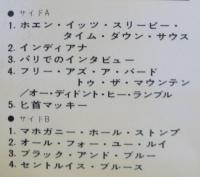 ● サイドA
1. ホエン・イッツ・スリーピー・
タイム・ダウン・サウス
2. インディアナ
3. パリでのインタビュー
4. フリー・アズ・ア・バード
トゥ・ザ・マウンテン
/オー・ディドント・ヒー・ランブル
5. 匕首マッキー
● サイドB
1. マホガニー・ホール・ストンプ
2. オール・フォー・ユー・ルイ
3. ブラック・アンド・ブルー
4. セントルイス・ブルース